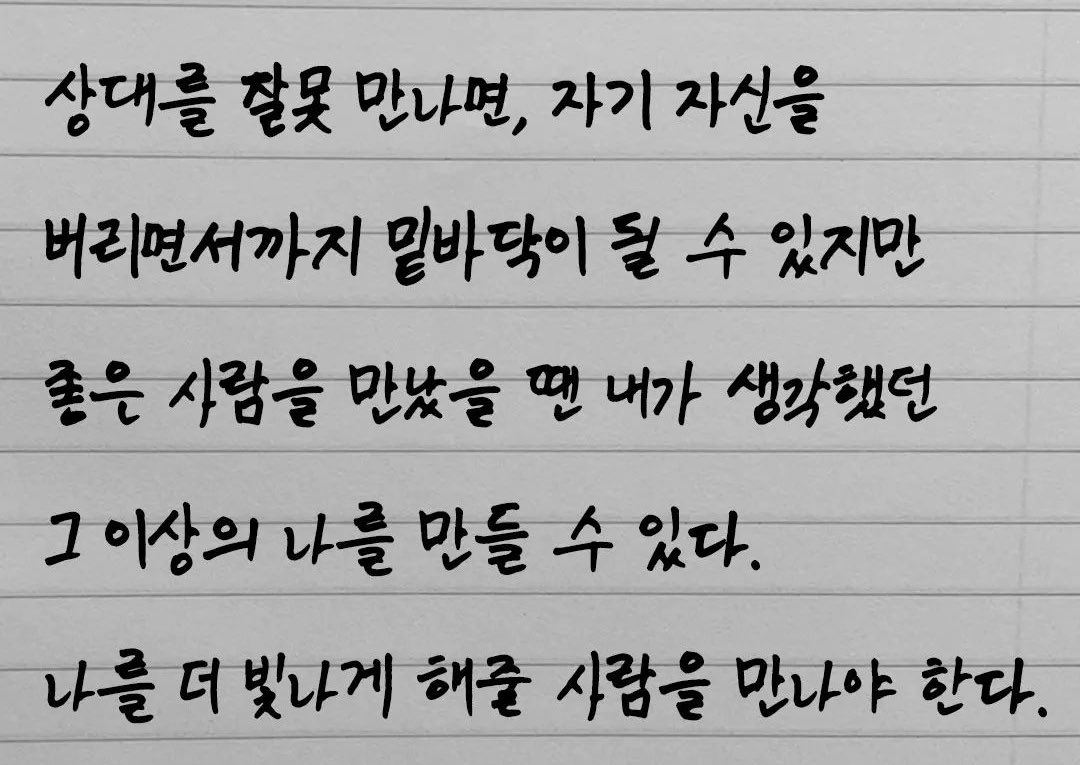 상대를 잘못 만나면, 자기 자신을
버리면서까지 밑바닥이 될 수 있지만
좋은 사람을 만났을 땐 내가 생각했던
그 이상의 나를 만들 수 있다.
나를 더 빛나게 해줄 사람을 만나야 한다.